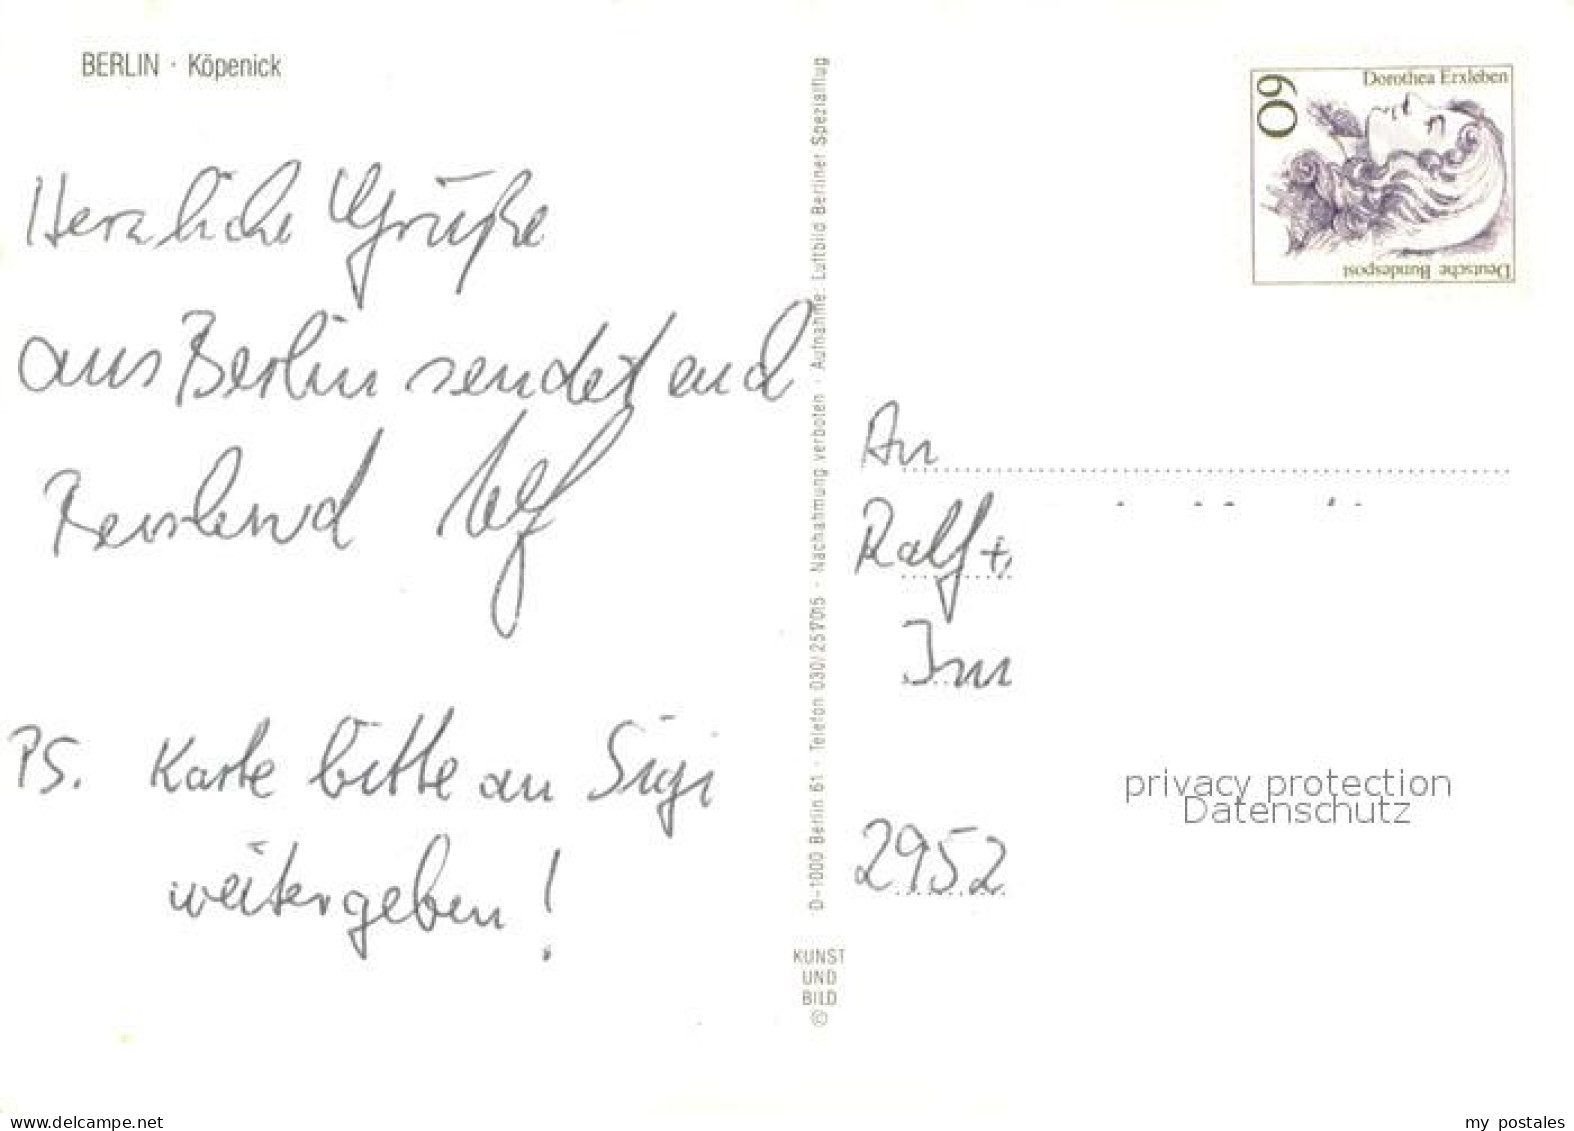 BERLIN · Köpenick
Herzliche Grüße
aus Berlin sendet euch
PS. Karte bitte an Sigi
weitergeben!
D-1000 Berlin 61 · Telefon 030/2517015 - Nachahmung verboten · Aufnahme: Luftbild Berliner Spezialflug
KUNST
UND
BILD
©
60
Dorothea Erxleben
Deutsche Bundespost
An
Ralf +
Im
2952
privacy protection
Datenschutz
www.delcampe.net
my postales